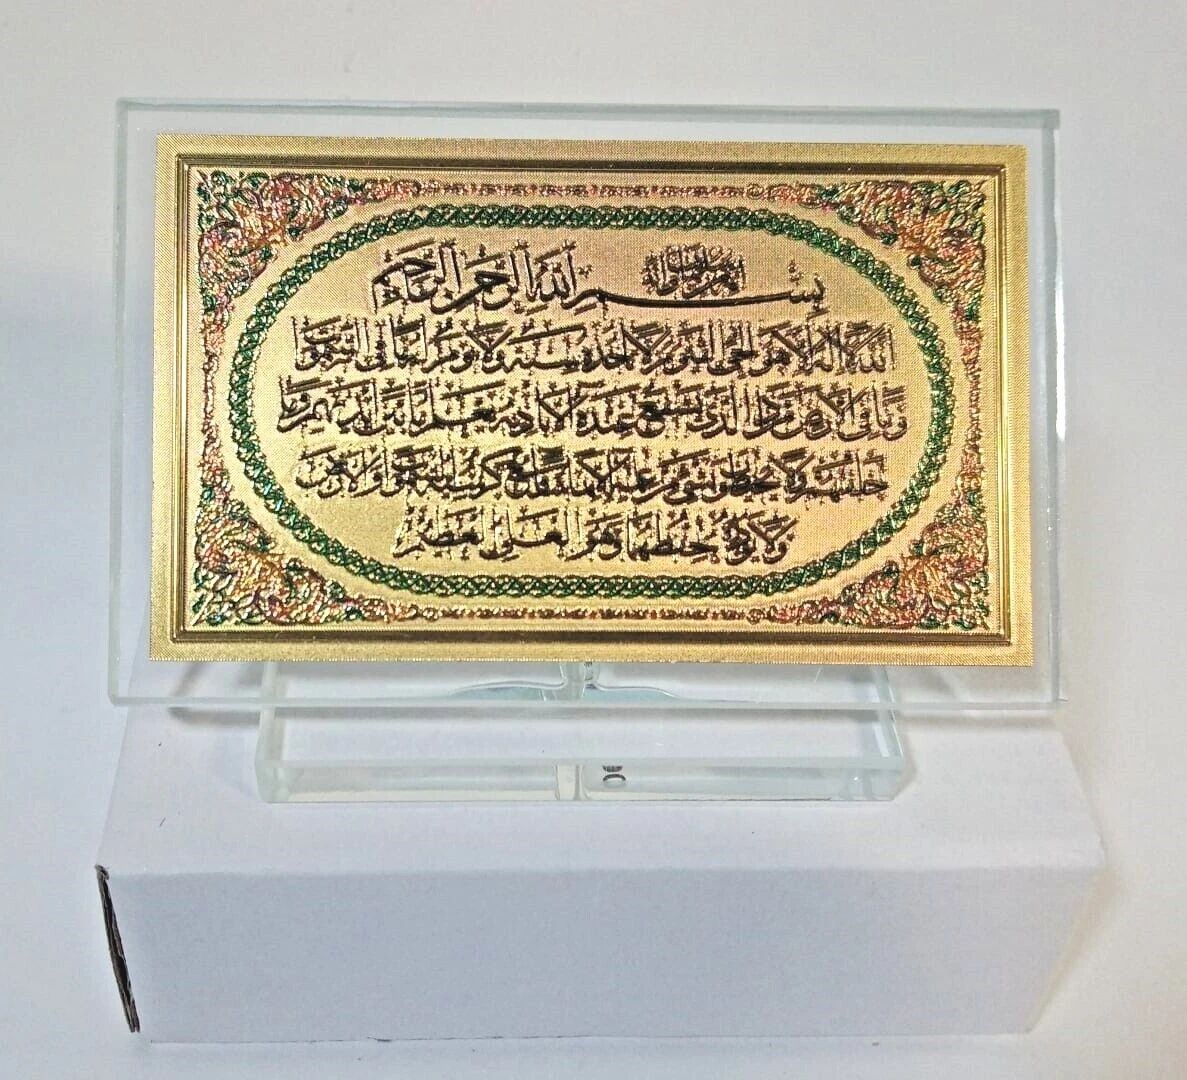 بسم الله الرحمن الرحيم
الله لا إله إلا هو الحي القيوم لا تأخذه سنة ولا نوم له ما في السموات
وما في الأرض من ذا الذي يشفع عنده إلا بإذنه يعلم ما بين أيديهم وما
خلفهم ولا يحيطون بشيء من علمه إلا بما شاء وسع كرسيه السموات والأرض
ولا يؤده حفظهما وهو العلي العظيم